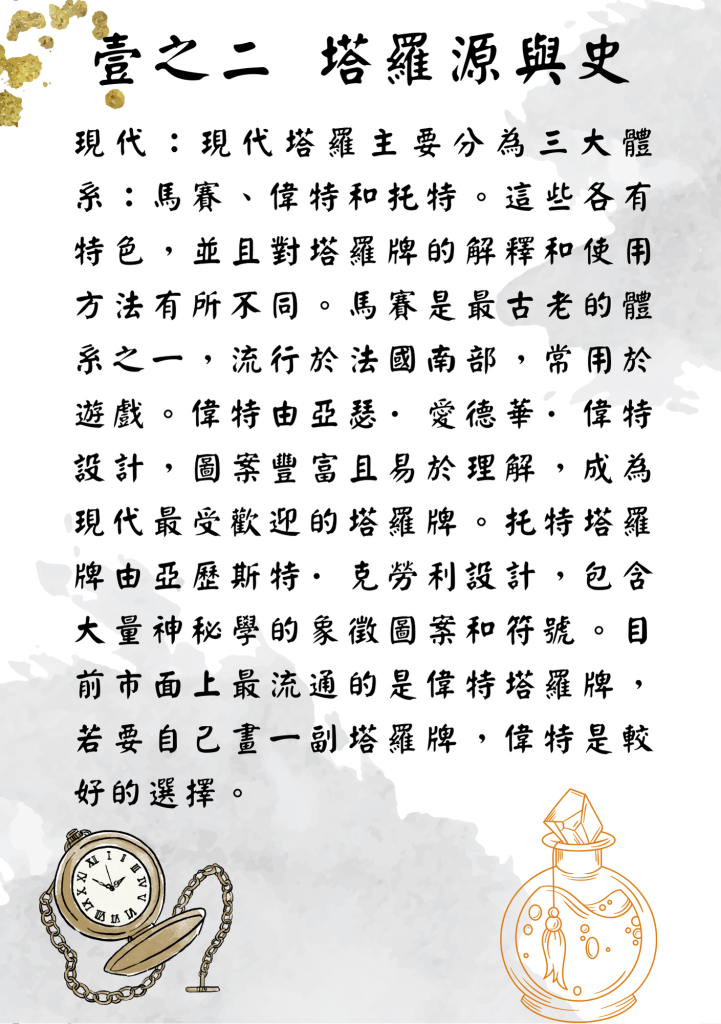 壹之二 塔羅源與史
現代：現代塔羅主要分為三大體
系：馬賽、偉特和托特。這些各有
特色，並且對塔羅牌的解釋和使用
方法有所不同。馬賽是最古老的體
系之一，流行於法國南部，常用於
遊戲。偉特由亞瑟·愛德華·偉特
設計，圖案豐富且易於理解，成為
現代最受歡迎的塔羅牌。托特塔羅
牌由亞歷斯特·克勞利設計，包含
大量神秘學的象徵圖案和符號。目
前市面上最流通的是偉特塔羅牌，
若要自己畫一副塔羅牌，偉特是較
好的選擇。
XII I II III IV V VI VII VIII IX X XI